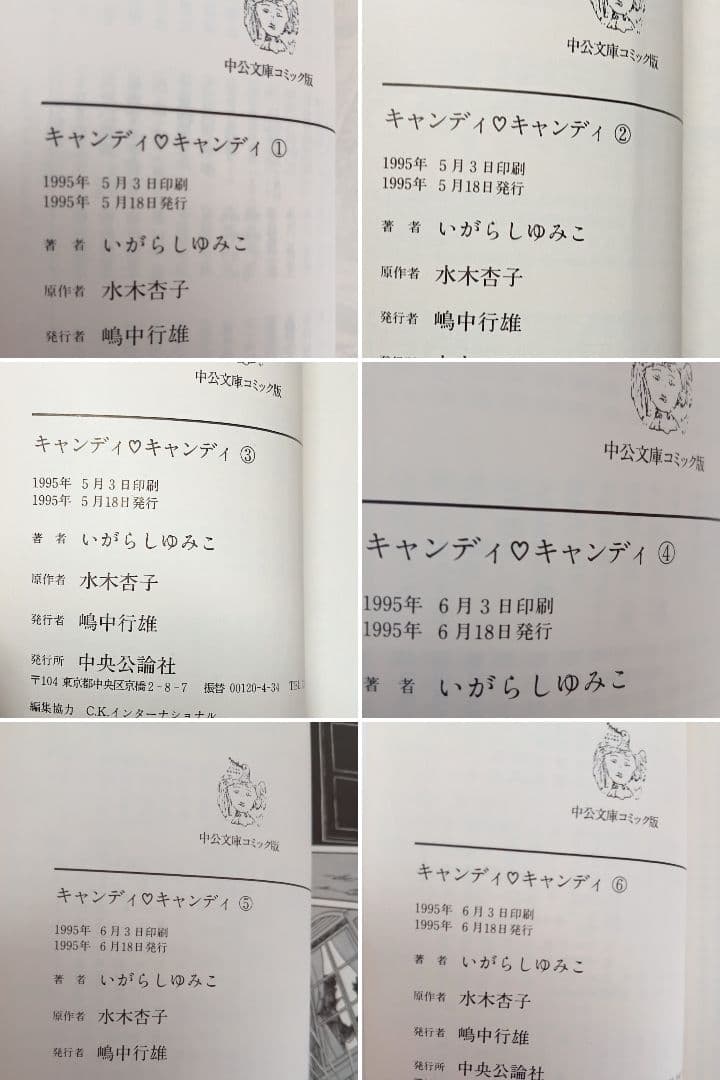 中公文庫コミック版
キャンディ♡キャンディ ①
1995年 5月3日印刷
1995年 5月18日発行
著 者 いがらしゆみこ
原作者 水木杏子
発行者 嶋中行雄
中公文庫コミック版
キャンディ♡キャンディ ②
1995年 5月3日印刷
1995年 5月18日発行
著 者 いがらしゆみこ
原作者 水木杏子
発行者 嶋中行雄
中公文庫コミック版
キャンディ♡キャンディ ③
1995年 5月3日印刷
1995年 5月18日発行
著 者 いがらしゆみこ
原作者 水木杏子
発行者 嶋中行雄
発行所 中央公論社
〒104 東京都中央区京橋2-8-7 振替 00120-4-34 TEL
編集協力 C.K.インターナショナル
中公文庫コミック版
キャンディ♡キャンディ ④
1995年 6月3日印刷
1995年 6月18日発行
著 者 いがらしゆみこ
中公文庫コミック版
キャンディ♡キャンディ ⑤
1995年 6月3日印刷
1995年 6月18日発行
著 者 いがらしゆみこ
原作者 水木杏子
発行者 嶋中行雄
中公文庫コミック版
キャンディ♡キャンディ ⑥
1995年 6月3日印刷
1995年 6月18日発行
著 者 いがらしゆみこ
原作者 水木杏子
発行者 嶋中行雄
発行所 中央公論社